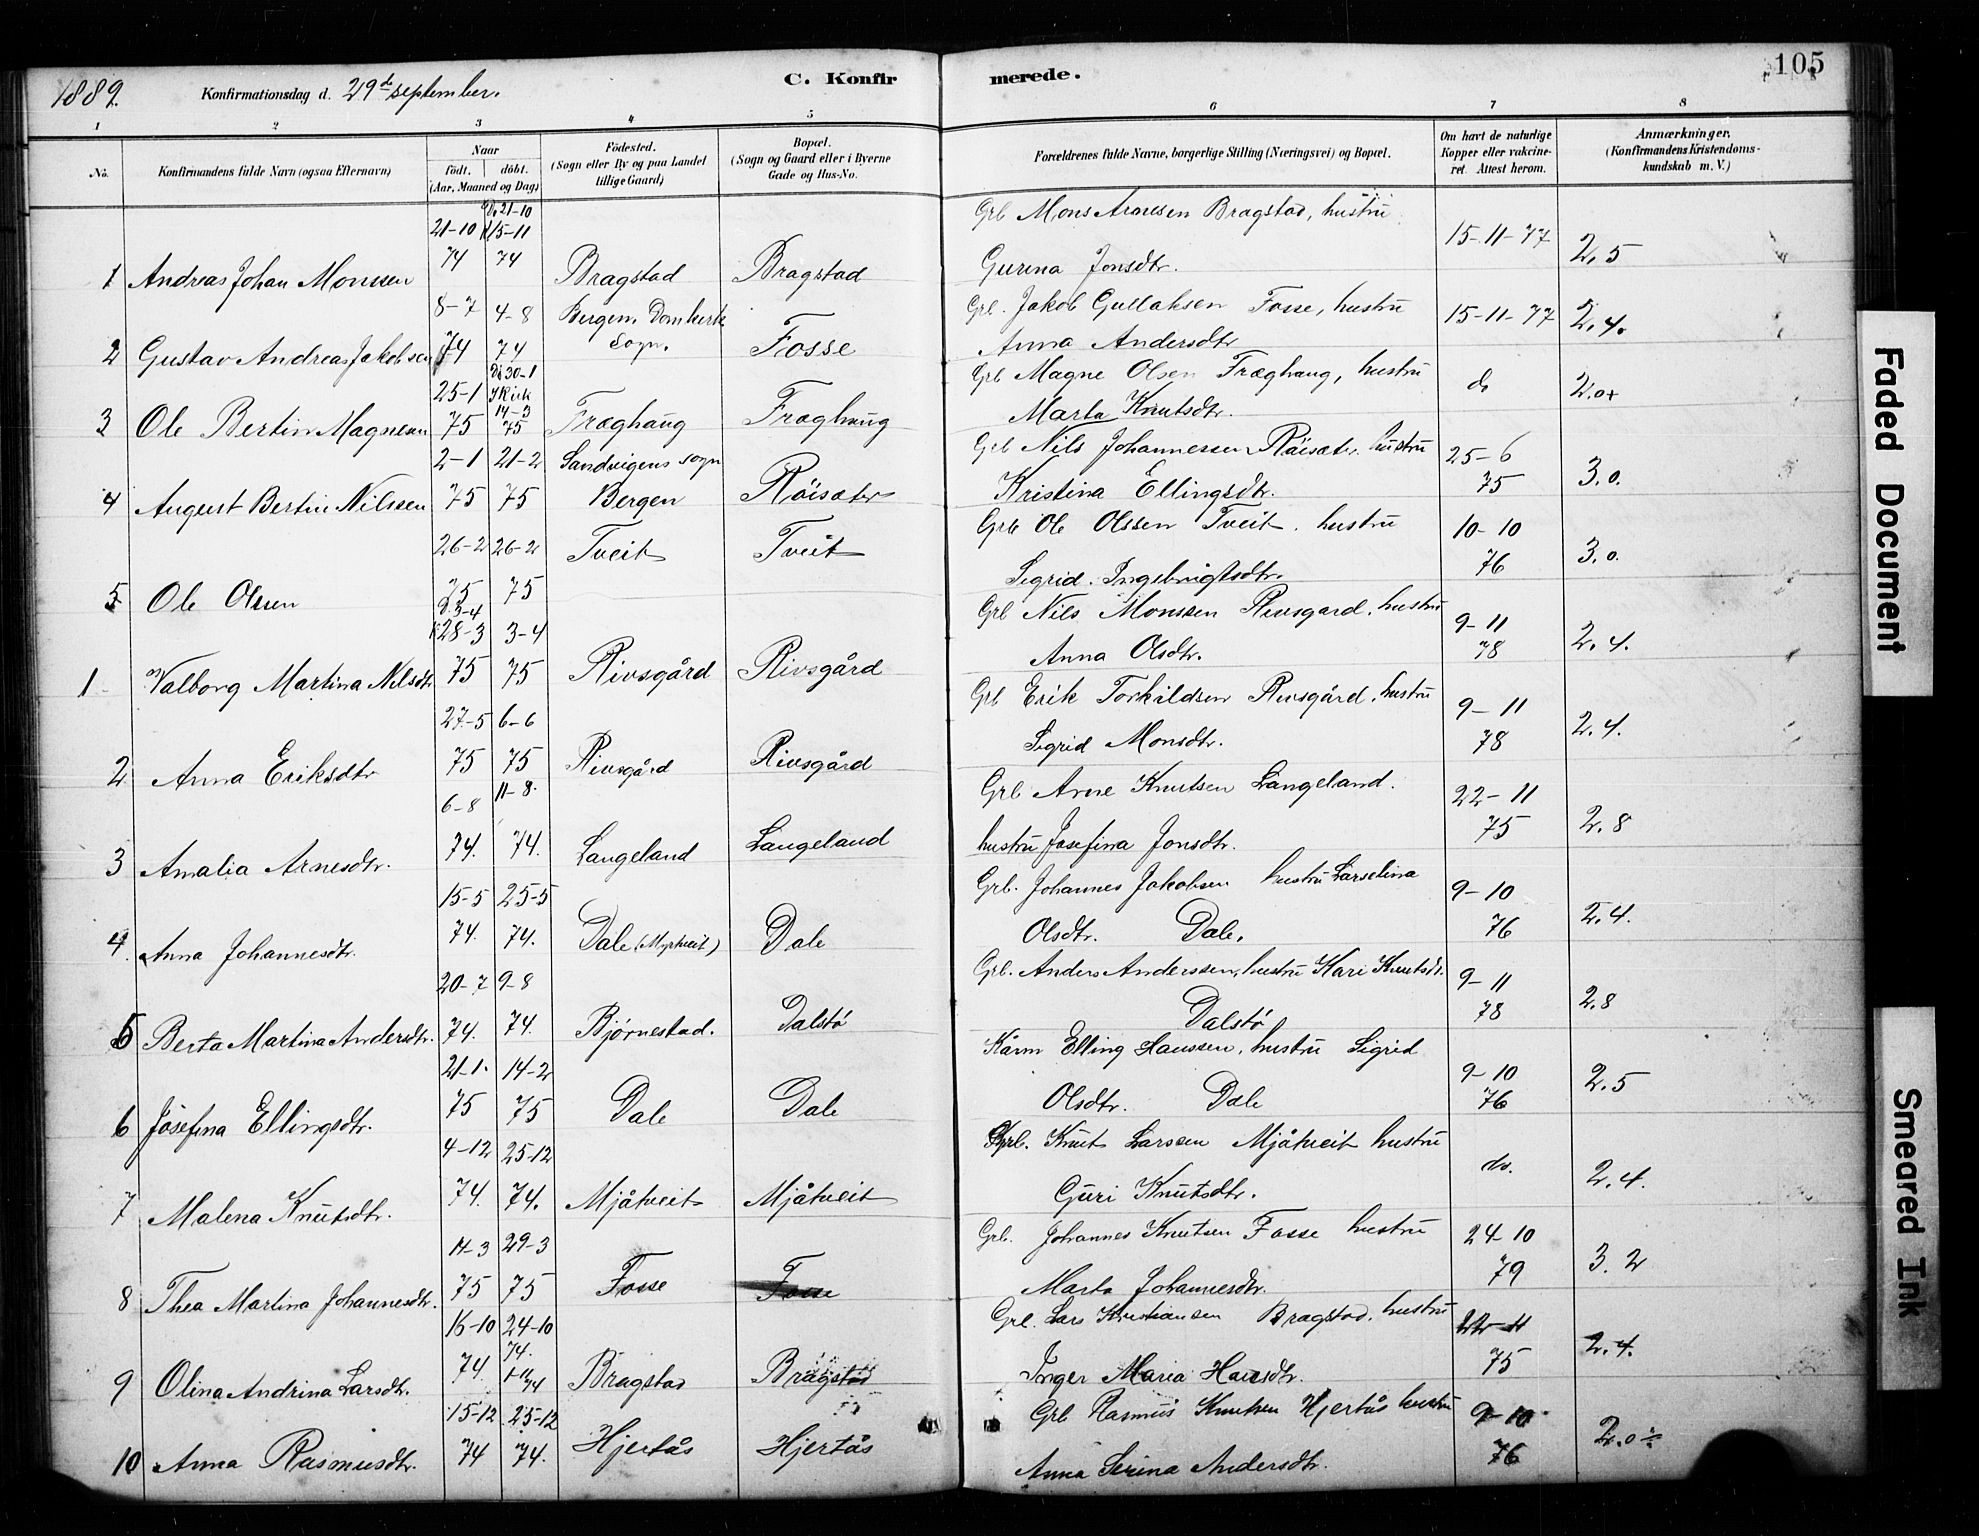 1889. Konfirmationsdag d. 29de september. C. Konfirmerede. 105
1 2 3 4 5 6 7 8
No. Konfirmandens fulde Navn (ogsaa Efternavn) Naar født. døbt. (Aar, Maaned og Dag) Fødested. (Sogn eller By og paa Landet tillige Gaard) Bopæl. (Sogn og Gaard eller i Byerne Gade og Hus-No. Forældrenes fulde Navne, borgerlige Stilling (Næringsvei) og Bopæl. Om havt de naturlige Kopper eller vakcineret. Attest herom. Anmærkninger. (Konfirmandens Kristendomskundskab m. V.)
1 Andreas Johan Monssen 21-10 74 21-10 15-11 74 Bragstad Bragstad Grb Mons Arnesen Bragstad, hustru Gurina Jonsdtr. 15-11-77 2,5
2 Gustav Andreas Jakobsen 8-7 74 4-8 74 Bergen, Domkirk Sogn. Fosse Grb. Jakob Gullaksen Fosse, hustru Anna Andersdtr 15-11-77 2,4.
3 Ole Bertin Magnesen 25-1 75 30-1 Kirk 14-3 75 Fræghaug Fræghaug Grb Magne Olsen Fræghaug, hustru Marta Knutsdtr. do 2,0+
4 August Bertin Nilssen 2-1 75 21-2 75 Sandvigens sogn Bergen Röisæter Grb Nils Johannessen Röisæter, hustru Kristina Ellingsdtr. 25-6 75 3,0.
5 Ole Olssen 26-2 75 26-2 75 Tveit Tveit Grb Ole Olssen Tveit, hustru Sigrid Ingebrigtsdtr. 10-10 76 3,0.
1 Valborg Martina Nilsdtr D. 3-4 28-3 75 3-4 75 Rivsgård Rivsgård Grb Nils Monssen Rivsgard, hustru Anna Olsdtr. 9-11 78 2,4.
2 Anna Eriksdtr 27-5 75 6-6 75 Rivsgård Rivsgård Grb Erik Torkildsen Rivsgård, hustru Sigrid Monsdtr. 9-11 78 2,4.
3 Amalia Arnesdtr. 6-8 74. 11-8. 74. Langeland Langeland Grb Arne Knutsen Langeland. hustru Josefina Jonsdtr. 22-11 75 2,8
4 Anna Johannesdtr. 15-5 74. 25-5 74. Dale (Myrtveit) Dale Grb. Johannes Jakobsen hustru Larselina Olsdtr. Dale. 9-10 76 2,4.
5 Berta Martina Andersdtr. 20-7 74. 9-8 74. Bjørnestad. Dalstö Grb. Anders Anderssen, hustru Kari Knutsdr. Dalstö 9-11 78 2,8
6 Josefina Ellingsdtr. 21-1. 75 14-2 75 Dale Dale Kårm Elling Hanssen, hustru Sigrid Olsdtr. Dale 9-10 76 2,5
7 Malena Knutsdtr. 4-12 74. 25-12 74. Mjåtveit Mjåtveit Grb. Knut Larssen Mjåtveit hustru Guri Knutsdtr. do. 2,4.
8 Thea Martina Johannesdtr. 11-3 75 29-3 75 Fosse Fosse Grb. Johannes Knutsen Fosse hustru Marta Johannesdtr. 24-10 79 3,2
9 Olina Andrina Larsdtr. 16-10 74. 24-10 74. 1-11 74 Bragstad Bragstad Grb. Lars Kristiansen Bragstad, hustru Inger Maria Hansdtr. 22-11 75 2,4.
10 Anna Rasmusdtr. 15-12 74 25-12 74. Hjertås Hjertås Grb Rasmus Knutsen Hjertås hustru Anna Serina Andersdtr. 9-10 76 2,0
Faded Document
Smeared Ink